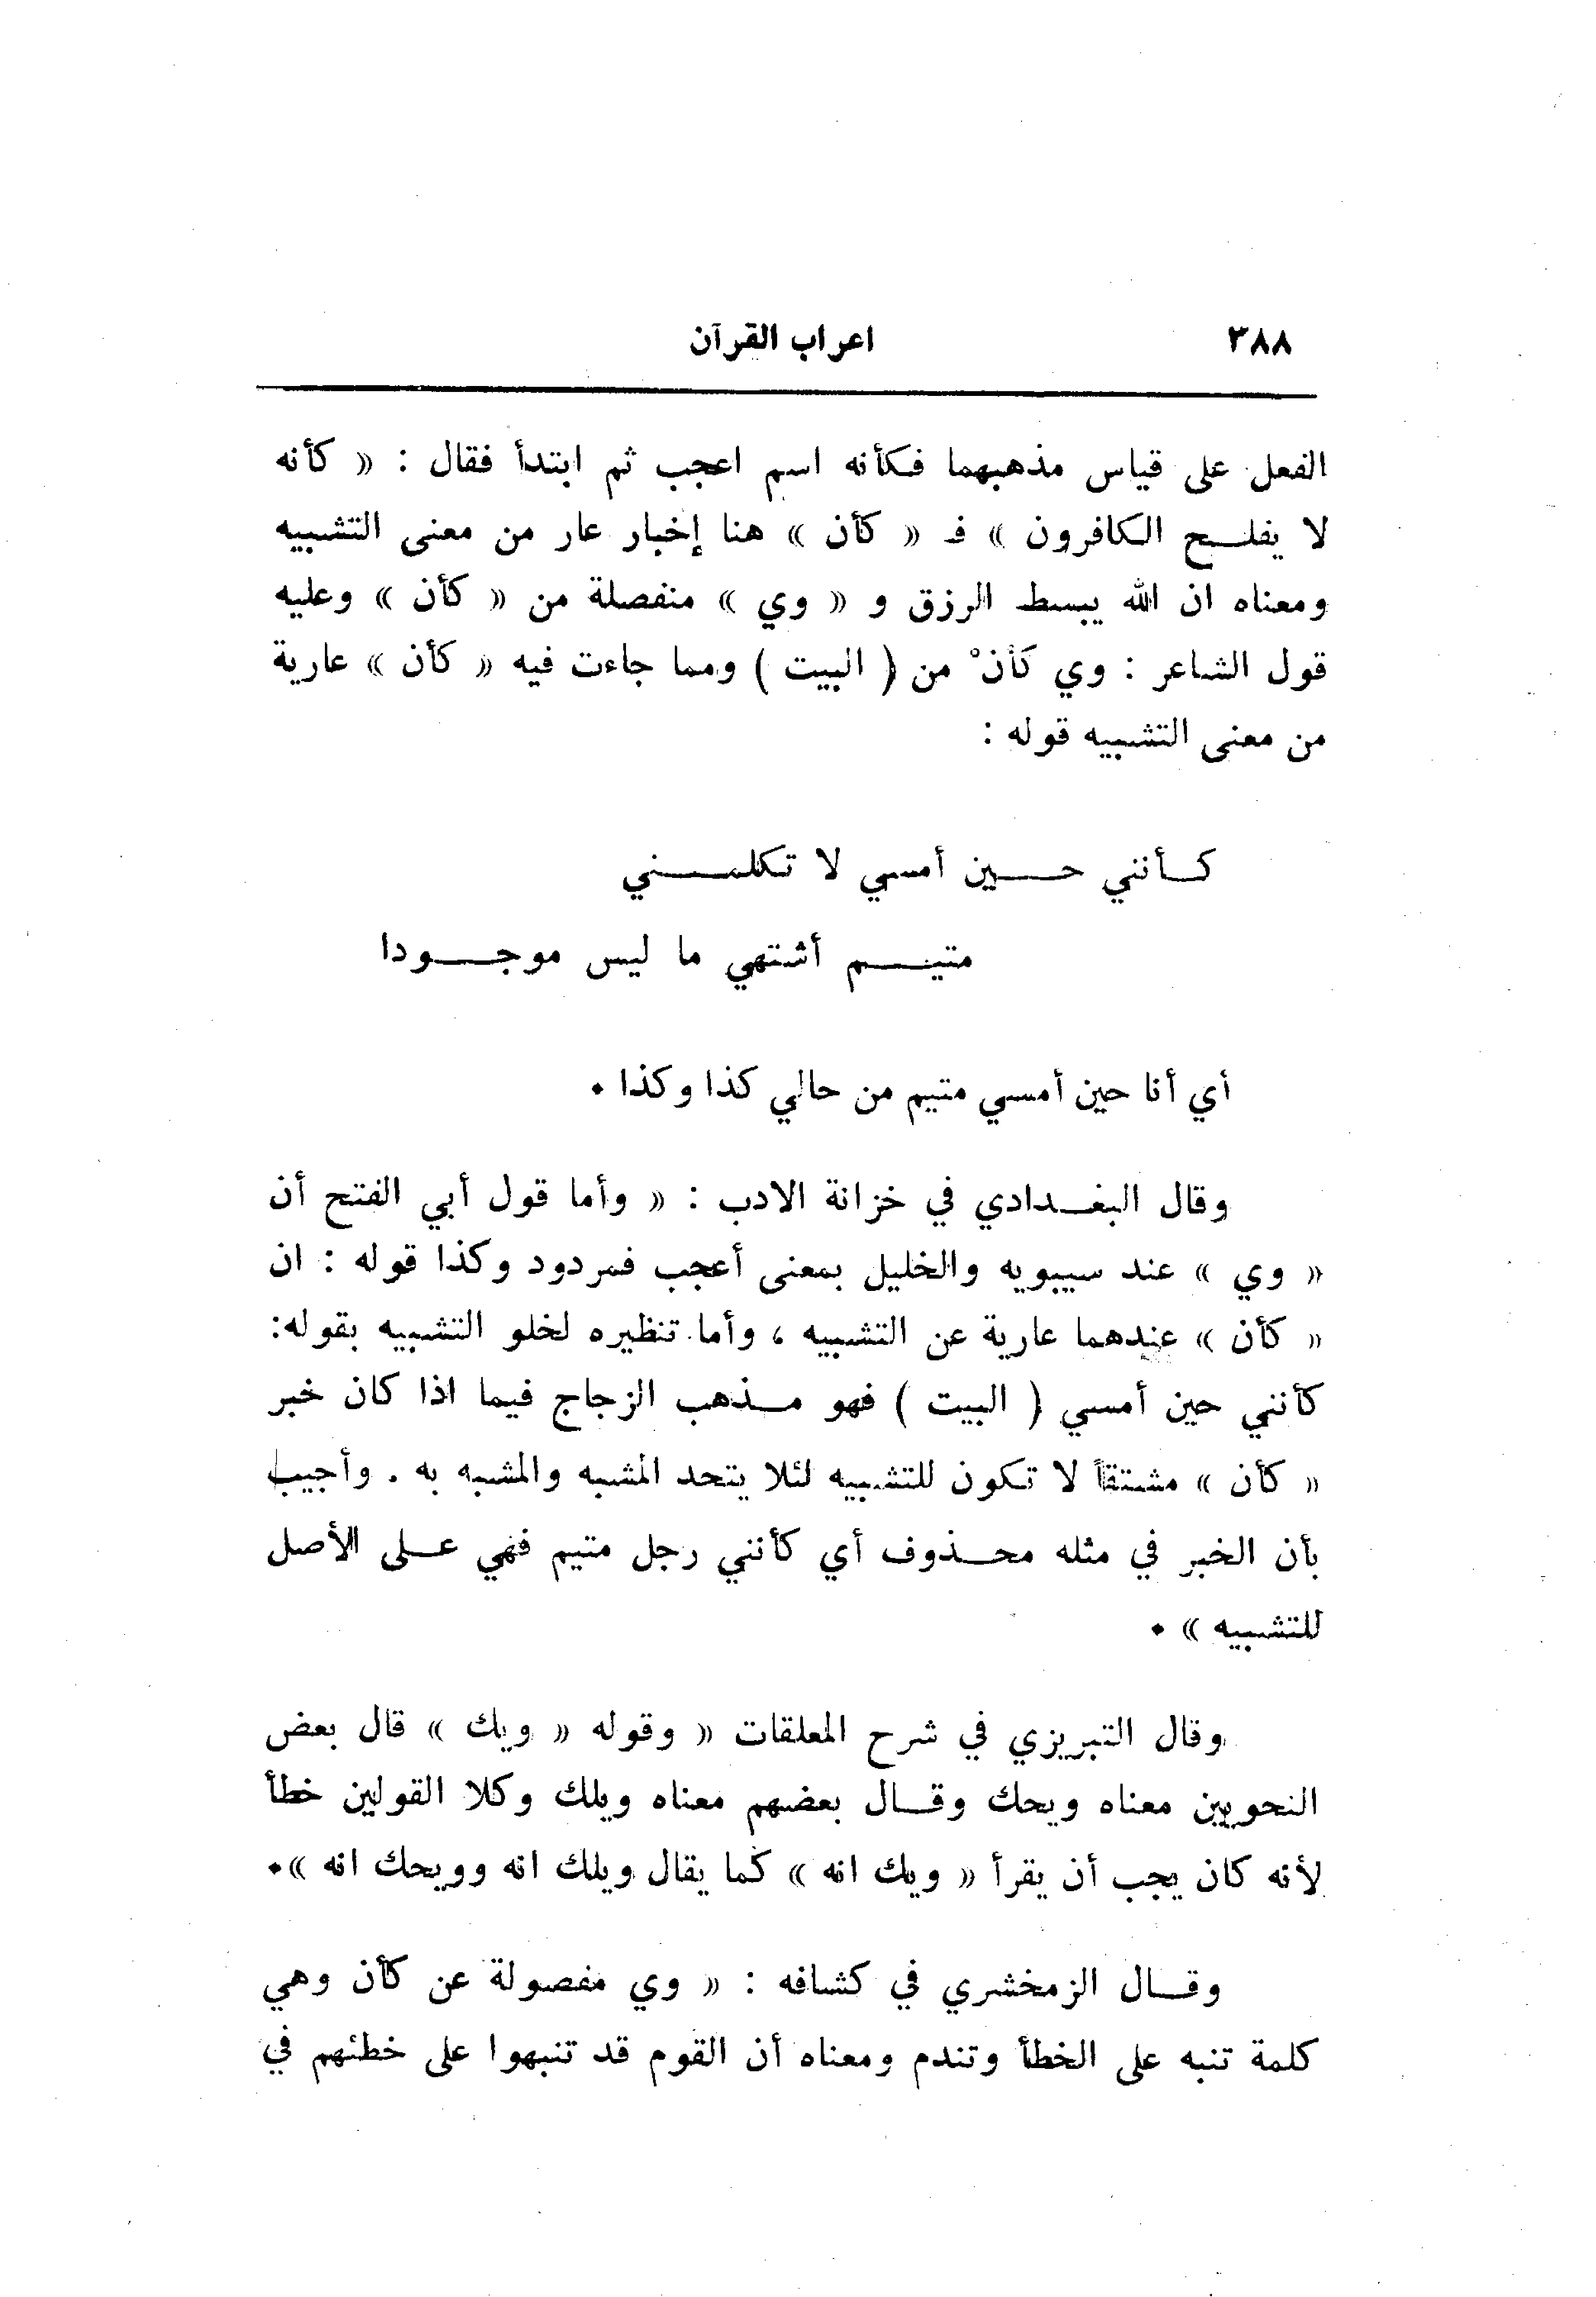 ٣٨٨ اعراب القرآن
الفعل على قياس مذهبهما فكأنه اسم اعجب ثم ابتدأ فقال : « كأنه
لا يفلح الكافرون » فـ « كأن » هنا إخبار عار من معنى التشبيه
ومعناه ان الله يبسط الرزق و « وي » منفصلة من « كأن » وعليه
قول الشاعر : وي كأنْ من ( البيت ) ومما جاءت فيه « كأن » عارية
من معنى التشبيه قوله :
كأنني حين أمسي لا تكلمني
متيم أشتهي ما ليس موجودا
أي أنا حين أمسي متيم من حالي كذا وكذا .
وقال البغدادي في خزانة الادب : « وأما قول أبي الفتح أن
« وي » عند سيبويه والخليل بمعنى أعجب فمردود وكذا قوله : ان
« كأن » عندهما عارية عن التشبيه ، وأما تنظيره لخلو التشبيه بقوله:
كأنني حين أمسي ( البيت ) فهو مذهب الزجاج فيما اذا كان خبر
« كأن » مشتقاً لا تكون للتشبيه لئلا يتحد المشبه والمشبه به . وأجيب
بأن الخبر في مثله محذوف أي كأنني رجل متيم فهي على الأصل
للتشبيه » .
وقال التبريزي في شرح المعلقات « وقوله « ويك » قال بعض
النحويين معناه ويحك وقال بعضهم معناه ويلك وكلا القولين خطأ
لأنه كان يجب أن يقرأ « ويك انه » كما يقال ويلك انه وويحك انه ».
وقال الزمخشري في كشافه : « وي مفصولة عن كأن وهي
كلمة تنبه على الخطأ وتندم ومعناه أن القوم قد تنبهوا على خطئهم في